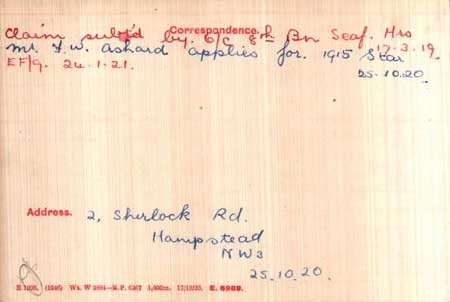 Correspondence.
Claim subt'd by O/C 8th Bn Seaf. Hrs
17-3.19.
Mr. F. W. Ashard applies for. 1915 Star
EF/9. 24.1.21.
25.10.20.
Address. 2, Sherlock Rd.
Hampstead
NW3
25.10.20.
(1246) Wt. W 2884—R.P. 6367 1,000m. 17/12/25. E. 6988.